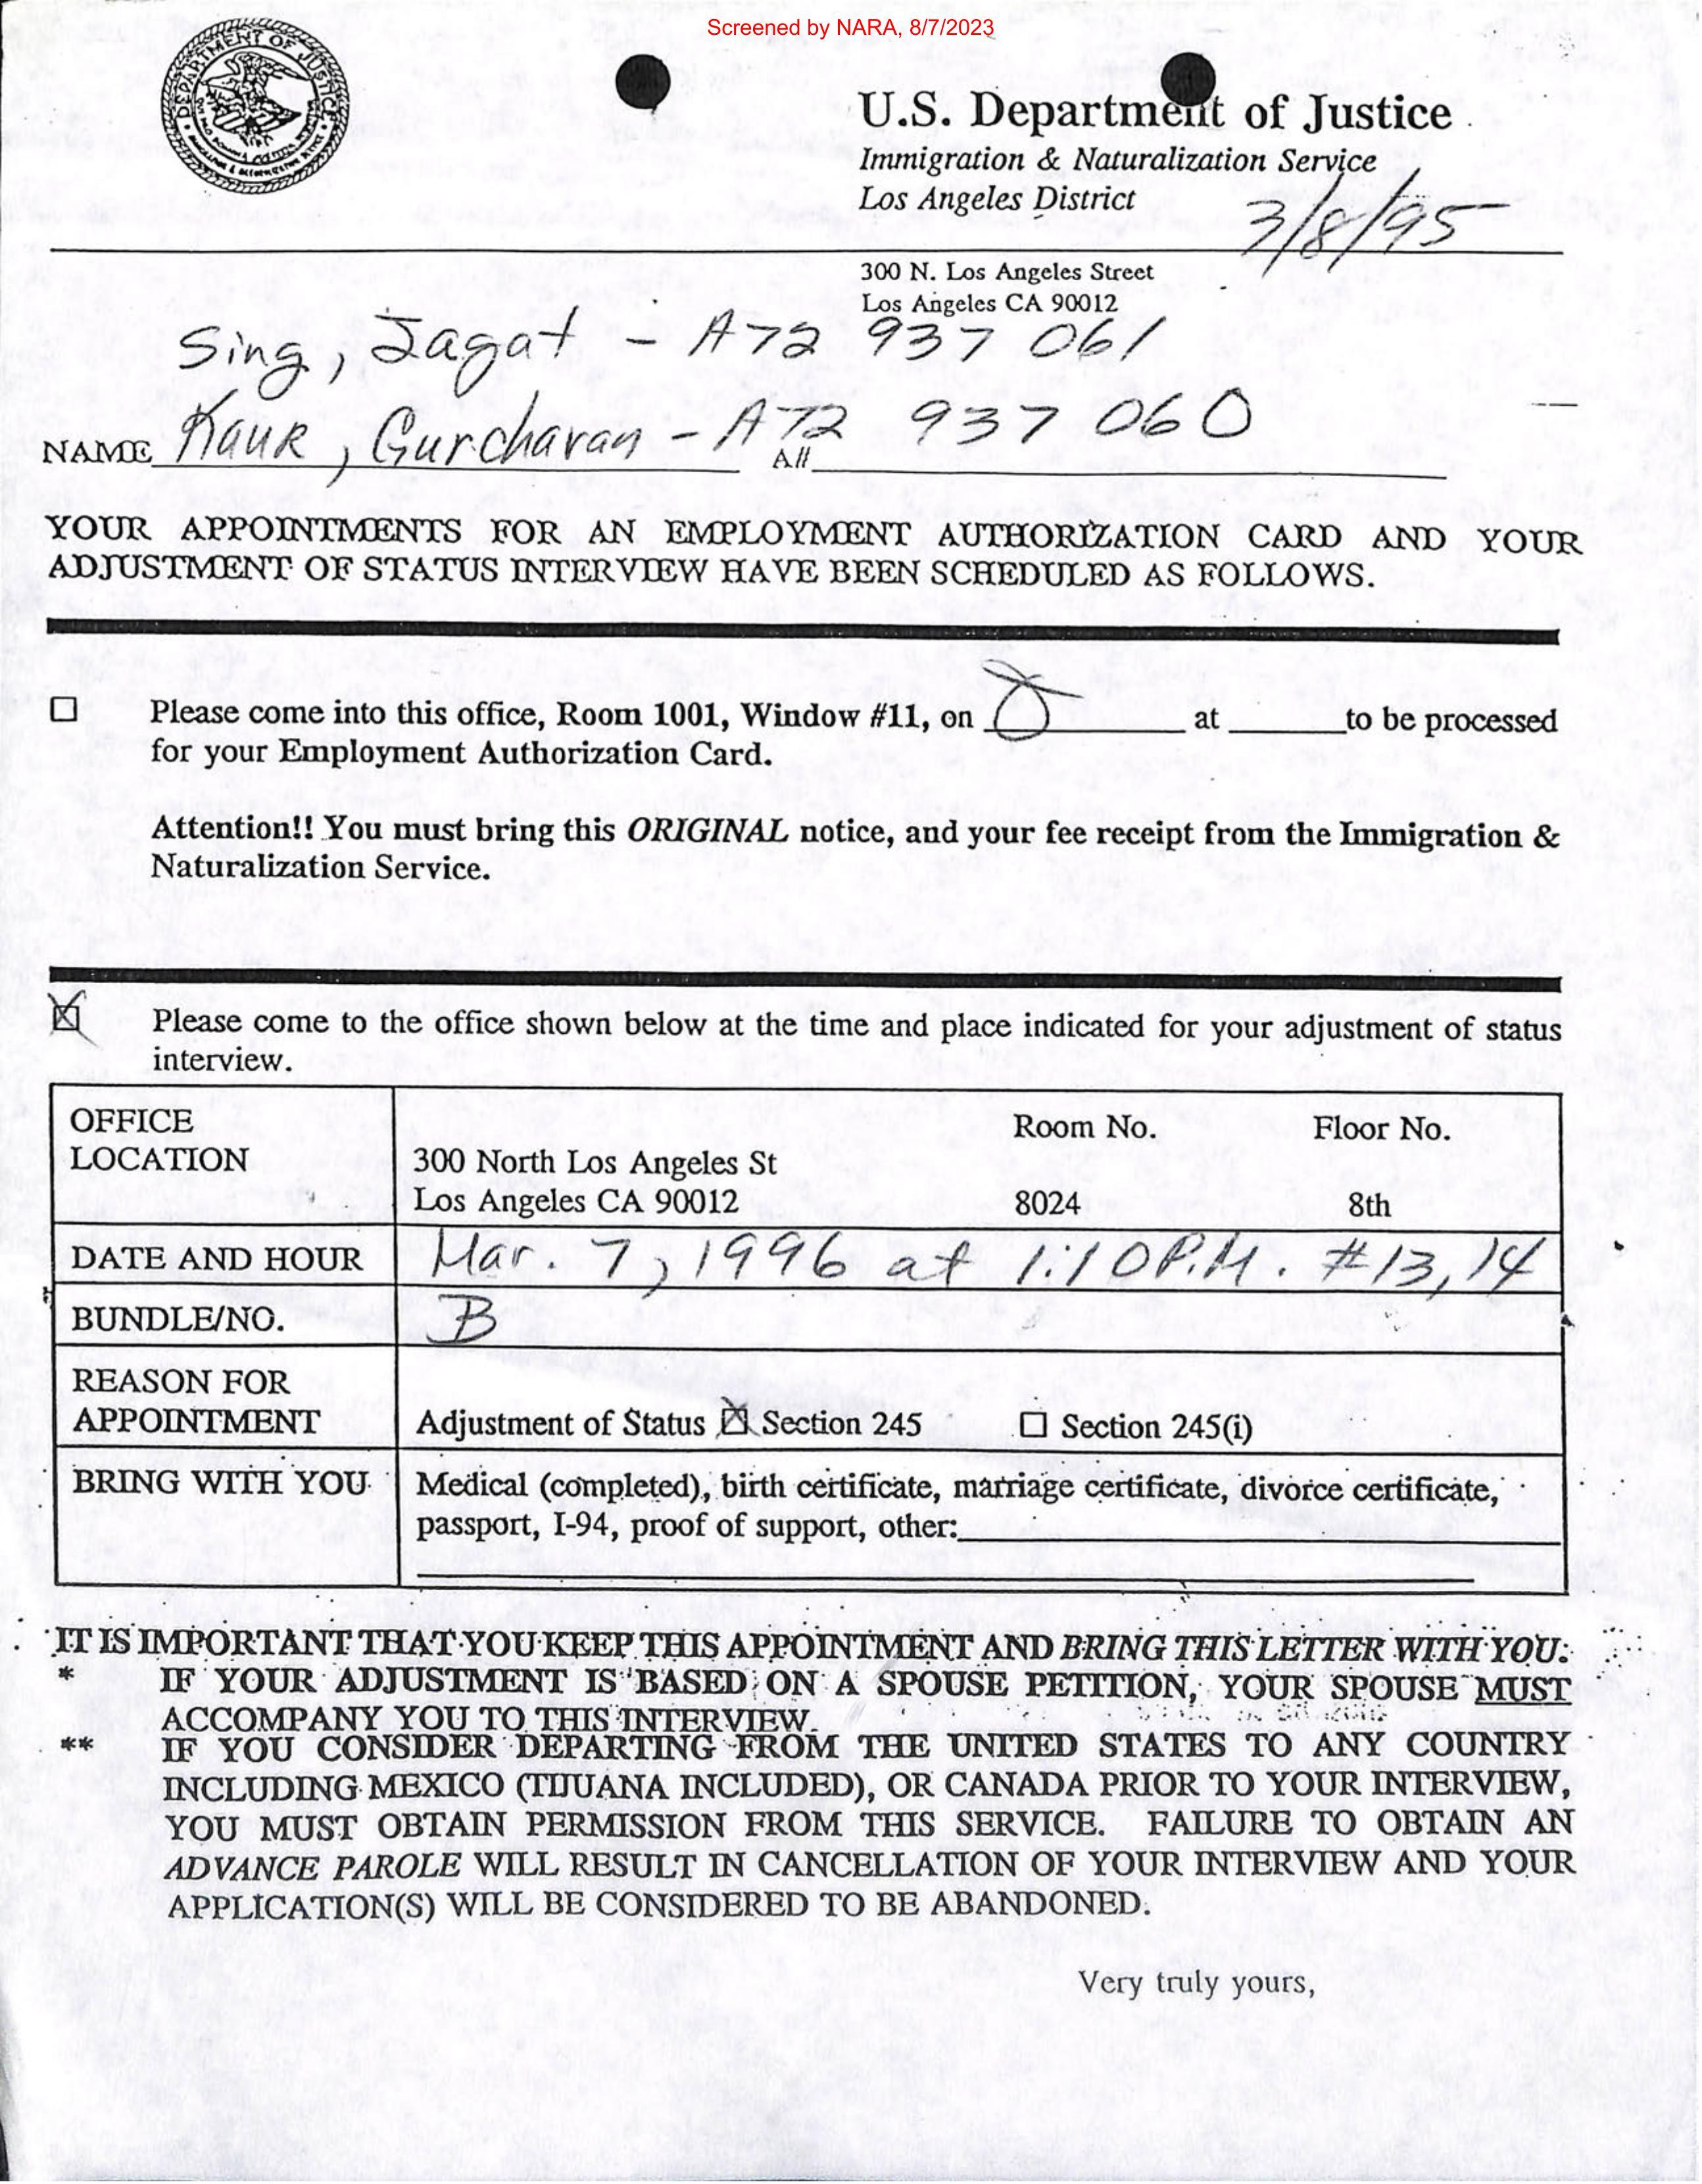 Screened by NARA, 8/7/2023
DEPARTMENT OF JUSTICE
U.S. Department of Justice
Immigration & Naturalization Service
Los Angeles District
3/8/95
300 N. Los Angeles Street
Los Angeles CA 90012
Sing, Jagat - A72 937 061
Kaur, Gurcharan - A72 937 060
NAME A#
YOUR APPOINTMENTS FOR AN EMPLOYMENT AUTHORIZATION CARD AND YOUR
ADJUSTMENT OF STATUS INTERVIEW HAVE BEEN SCHEDULED AS FOLLOWS.
Please come into this office, Room 1001, Window #11, on at to be processed
for your Employment Authorization Card.
Attention!! You must bring this ORIGINAL notice, and your fee receipt from the Immigration &
Naturalization Service.
Please come to the office shown below at the time and place indicated for your adjustment of status
interview.
OFFICE
LOCATION
Room No. Floor No.
300 North Los Angeles St
Los Angeles CA 90012 8024 8th
DATE AND HOUR Mar. 7, 1996 at 1:10 P.M. #13, 14
BUNDLE/NO. B
REASON FOR
APPOINTMENT Adjustment of Status Section 245 Section 245(i)
BRING WITH YOU Medical (completed), birth certificate, marriage certificate, divorce certificate,
passport, I-94, proof of support, other:
IT IS IMPORTANT THAT YOU KEEP THIS APPOINTMENT AND BRING THIS LETTER WITH YOU:
* IF YOUR ADJUSTMENT IS BASED ON A SPOUSE PETITION, YOUR SPOUSE MUST
ACCOMPANY YOU TO THIS INTERVIEW.
** IF YOU CONSIDER DEPARTING FROM THE UNITED STATES TO ANY COUNTRY
INCLUDING MEXICO (TIJUANA INCLUDED), OR CANADA PRIOR TO YOUR INTERVIEW,
YOU MUST OBTAIN PERMISSION FROM THIS SERVICE. FAILURE TO OBTAIN AN
ADVANCE PAROLE WILL RESULT IN CANCELLATION OF YOUR INTERVIEW AND YOUR
APPLICATION(S) WILL BE CONSIDERED TO BE ABANDONED.
Very truly yours,